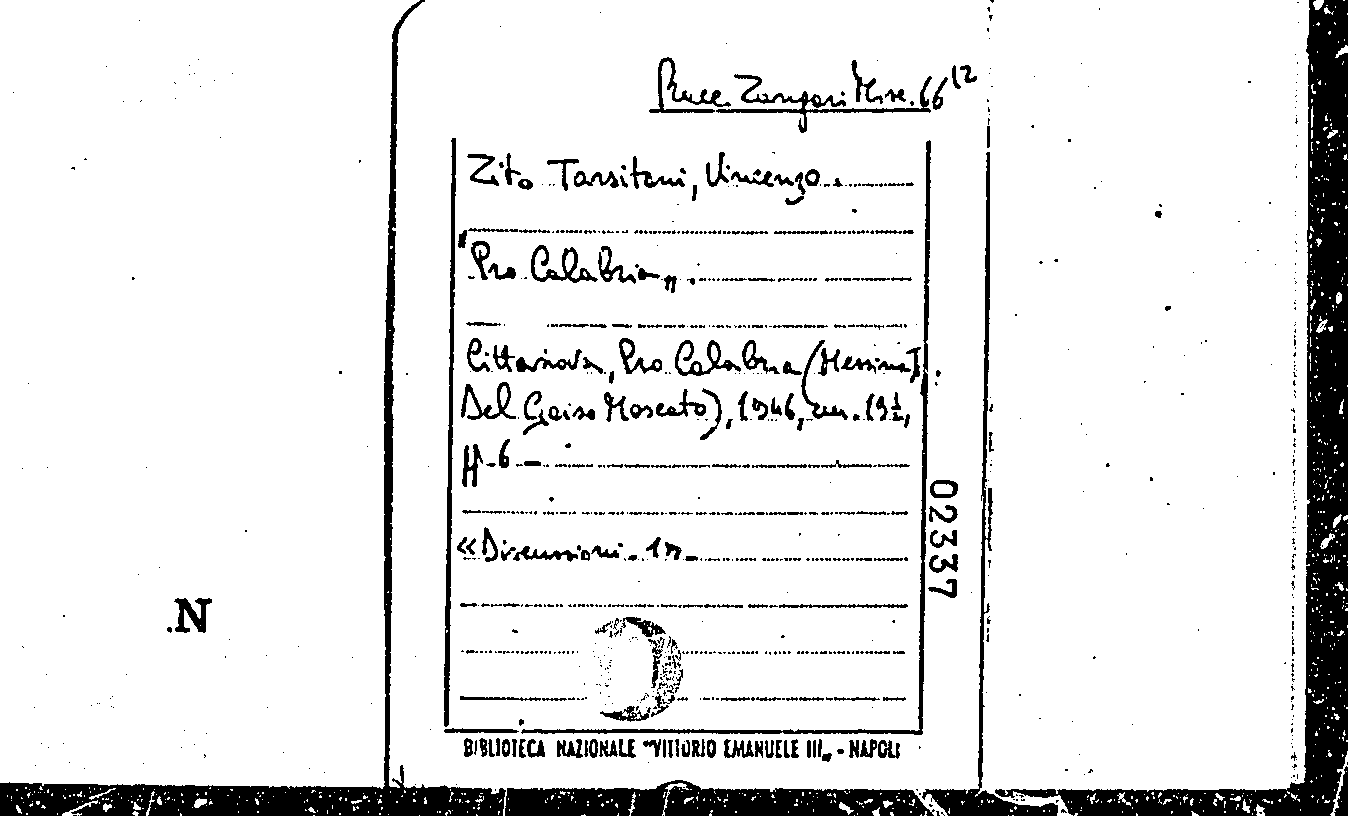 Racc. Zangari Misc. 66¹²
Zito Tarsitani, Vincenzo.
"Pro Calabria„.
Cittanova, Pro Calabria (Messina,
Del Gaiso Moscato), 1946, cm. 19½,
pp. 6 –
«Discussioni. 1».
02337
N.
BIBLIOTECA NAZIONALE "VITTORIO EMANUELE III„ - NAPOLI